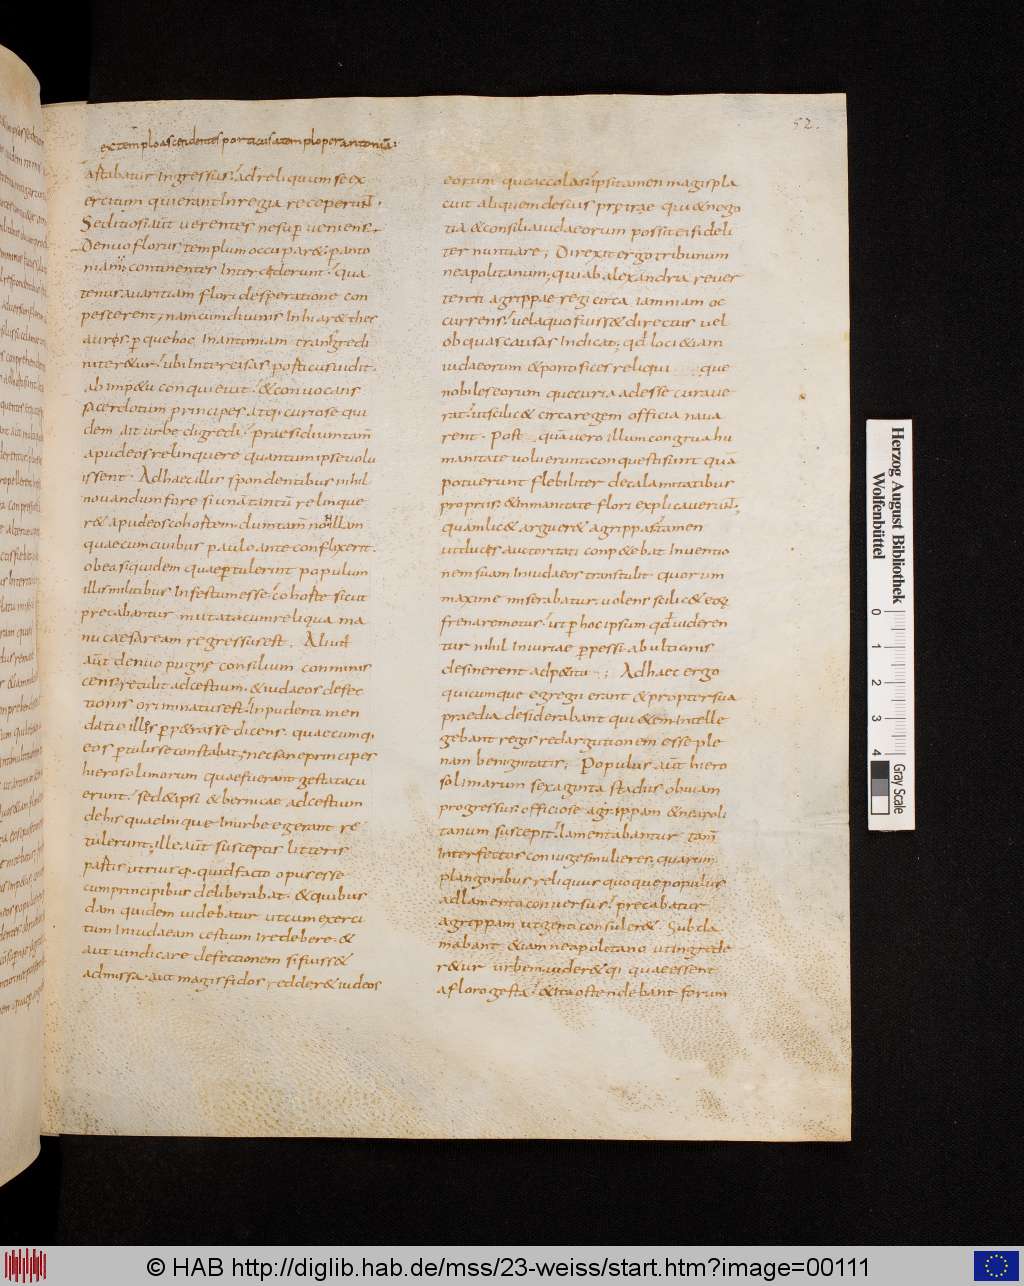 52.
extemplo ascendentes porticus a templo per antoniā·
astabatur Ingressus: ad reliquum se ex
ercitum qui erant In regia receperunt·
Seditiosi aut uerentes ne sup ueniens
Denuo florus templum occuparet· p anto
niam; continenter Interciderunt· qua
tenus auaritiam flori desperatione con
pescerent; nam cum diuinis Inhiaret thes
auris· p que hoc In antoniam transgredi
niteretur· ubi Interscisas porticus uidit·
ab impetu conquieuit· & conuocans
sacerdotum principes atq curiae qui
dem ait urbe digredi· praesidium tam̄
apud eos relinquere quantum ipse uolu
issent· Ad haec illis spondentibus nihil
nouandum fore si unā tantū relinque
ret apud eos cohortem· dum tam̄ non illam
quae cum ciuibus paulo ante conflixerit·
ob ea siquidem quae ptulerint populum
illis militibus Infestum esse· cohorte sicut
precabantur mutata cum reliqua ma
nu caesaream regressus est· Aliud
aūt denuo pugne consilium conminis
cens· retulit ad cestium· & iudaeos defec
tionis criminatus est· Inpudenti men
datio illos ppetrasse dicens· quaecumq
eos ptulisse constabat; nec sane principes
hierosolimorum quae fuerant gesta tacu
erunt· sed & ipsi & bernicae ad cestium
de his quae Inique In urbe egerant re
tulerunt; ille aūt susceptis litteris
partis utriusq· quid facto opus esse
cum principibus deliberabat· & quibus
dam quidem uidebatur ut cum exerci
tum In iudaeam cestium Ire debere· &
aut uindicare defectionem si fuisset
admissa· aut magis fidos redderet iudeos
eorum qui accolas· ipsi tamen magis pla
cuit aliquem de suis premitrae qui & nego
tia & consilia iudaeorum possit ei fideli
ter nuntiare; Direxit ergo tribunum
neapolitanum; qui ab alexandria reuer
tenti agrippae regi circa iamniam oc
currens· uel a quo fuisset directus uel
ob quas causas Indicat; qđ loci & iam
iudaeorum & pontifices reliqui que
nobiles eorum que curia adesse curaue
rat· ut scilic& circa regem officia naua
rent· Post quā uero illum congrua hu
manitate uoluerunt· conquesti sunt quā
potuerunt flebiliter de calamitatibus
propriis· & Inmanitate flori explicauerunt·
quam lic& arguer& agrippas· tamen
ut duces auctoritati conpetebat Inuentio
nem suam In iudaeos transtulit quorum
maxime miserabatur· uolens scilic& eos
frena remotus· ut p hoc ipsum qđ uideren
tur nihil Iniuriae pperssi ab ultionis
desinerent adpetitu·; Ad haec ergo
quicumque egregii erant & propter sua
praedia desiderabant qui & em Intelle
gebant regis redargutionem esse ple
nam benignitatis; Populus aūt hiero
solimarum sexaginta stadiis obuiam
progressus· officiose agrippam & neapoli
tanum suscepit· lamentabantur tam̄
Interfectos coniuges mulieres; quarum
plangoribus reliquus quoque populus
ad lamenta conuersus· precabatur
agrippam ut genti consuleret· Sub cla
mabant & iam neapolitano ut ingrede
retur urbem· uideret q; quae essent
a floro gesta· & ita ostendebant forum
Herzog August Bibliothek
Wolfenbüttel
0 1 2 3 4
Gray Scale
© HAB http://diglib.hab.de/mss/23-weiss/start.htm?image=00111